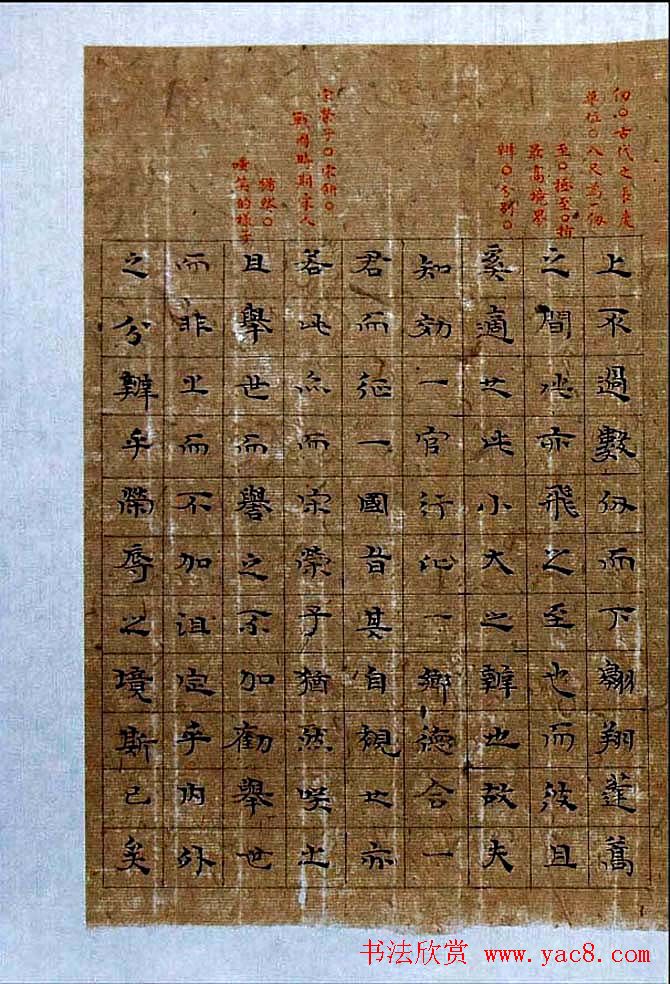 仞○古代之長度
單位○八尺為一仞
至○極至○指
最高境界
辨○分別○
宋榮子○宋鈃○
戰國時期宋人
猶然○
嗤笑的樣子
上不過數仞而下翱翔蓬蒿
之間此亦飛之至也而彼且
奚適也此小大之辨也故夫
知効一官行比一鄉德合一
君而征一國者其自視也亦
若此矣而宋榮子猶然咲之
且舉世而譽之不加勸舉世
而非之而不加沮定乎內外
之分辨乎榮辱之境斯已矣
书法欣赏 www.yac8.com